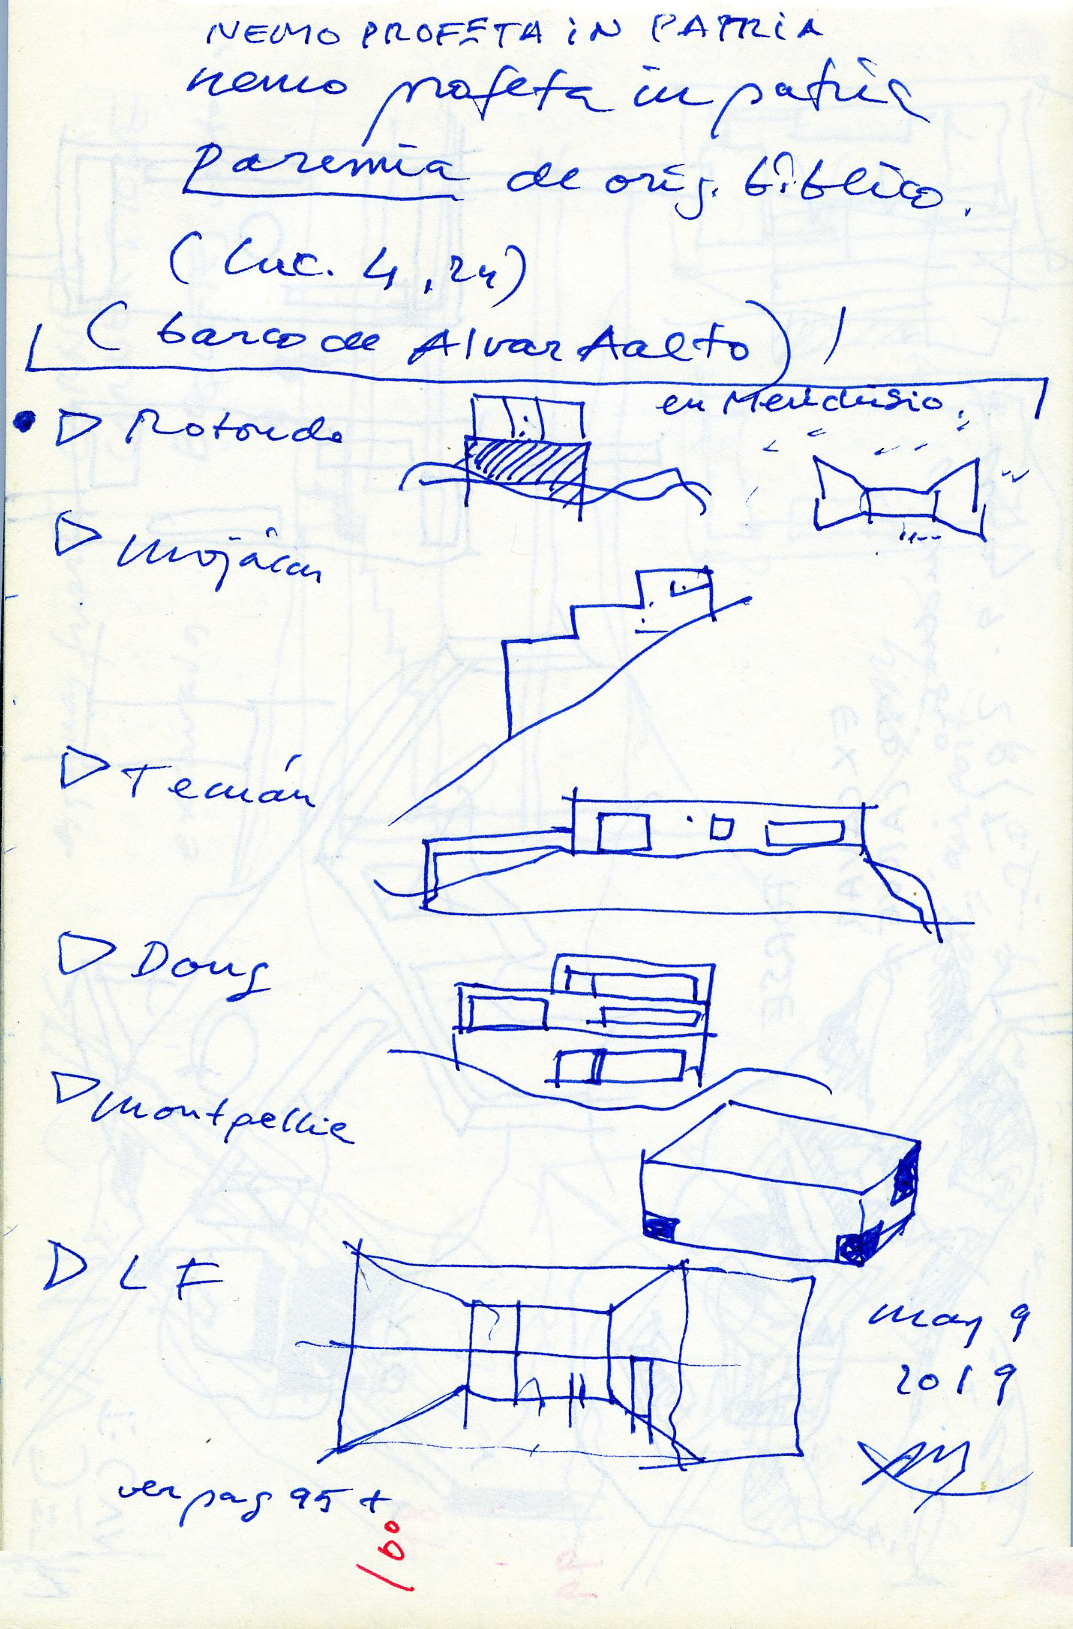 NEMO PROFETA iN PATRiA
nemo profeta in patria
paremia de orig. bíblico.
(Luc. 4, 24)
(barco de Alvar Aalto)
en Meridusio.
Rotonda
Mojácar
Temán
Doug
Montpellie
LF
may 9
2019
ver pag 95 +
100